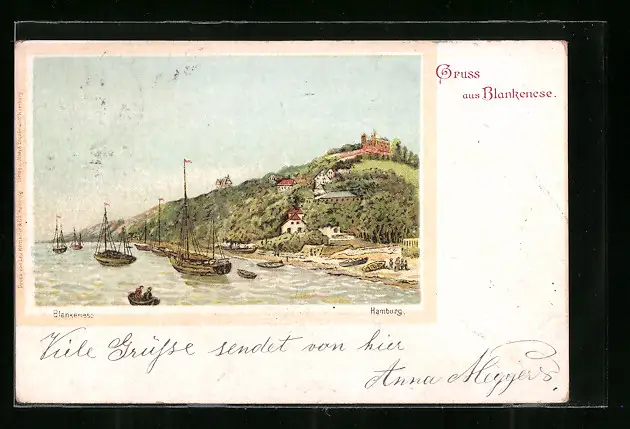 Gruss
aus Blankenese.
Blankenese
Hamburg.
Viele Grüße sendet von hier
Anna Meyjers.